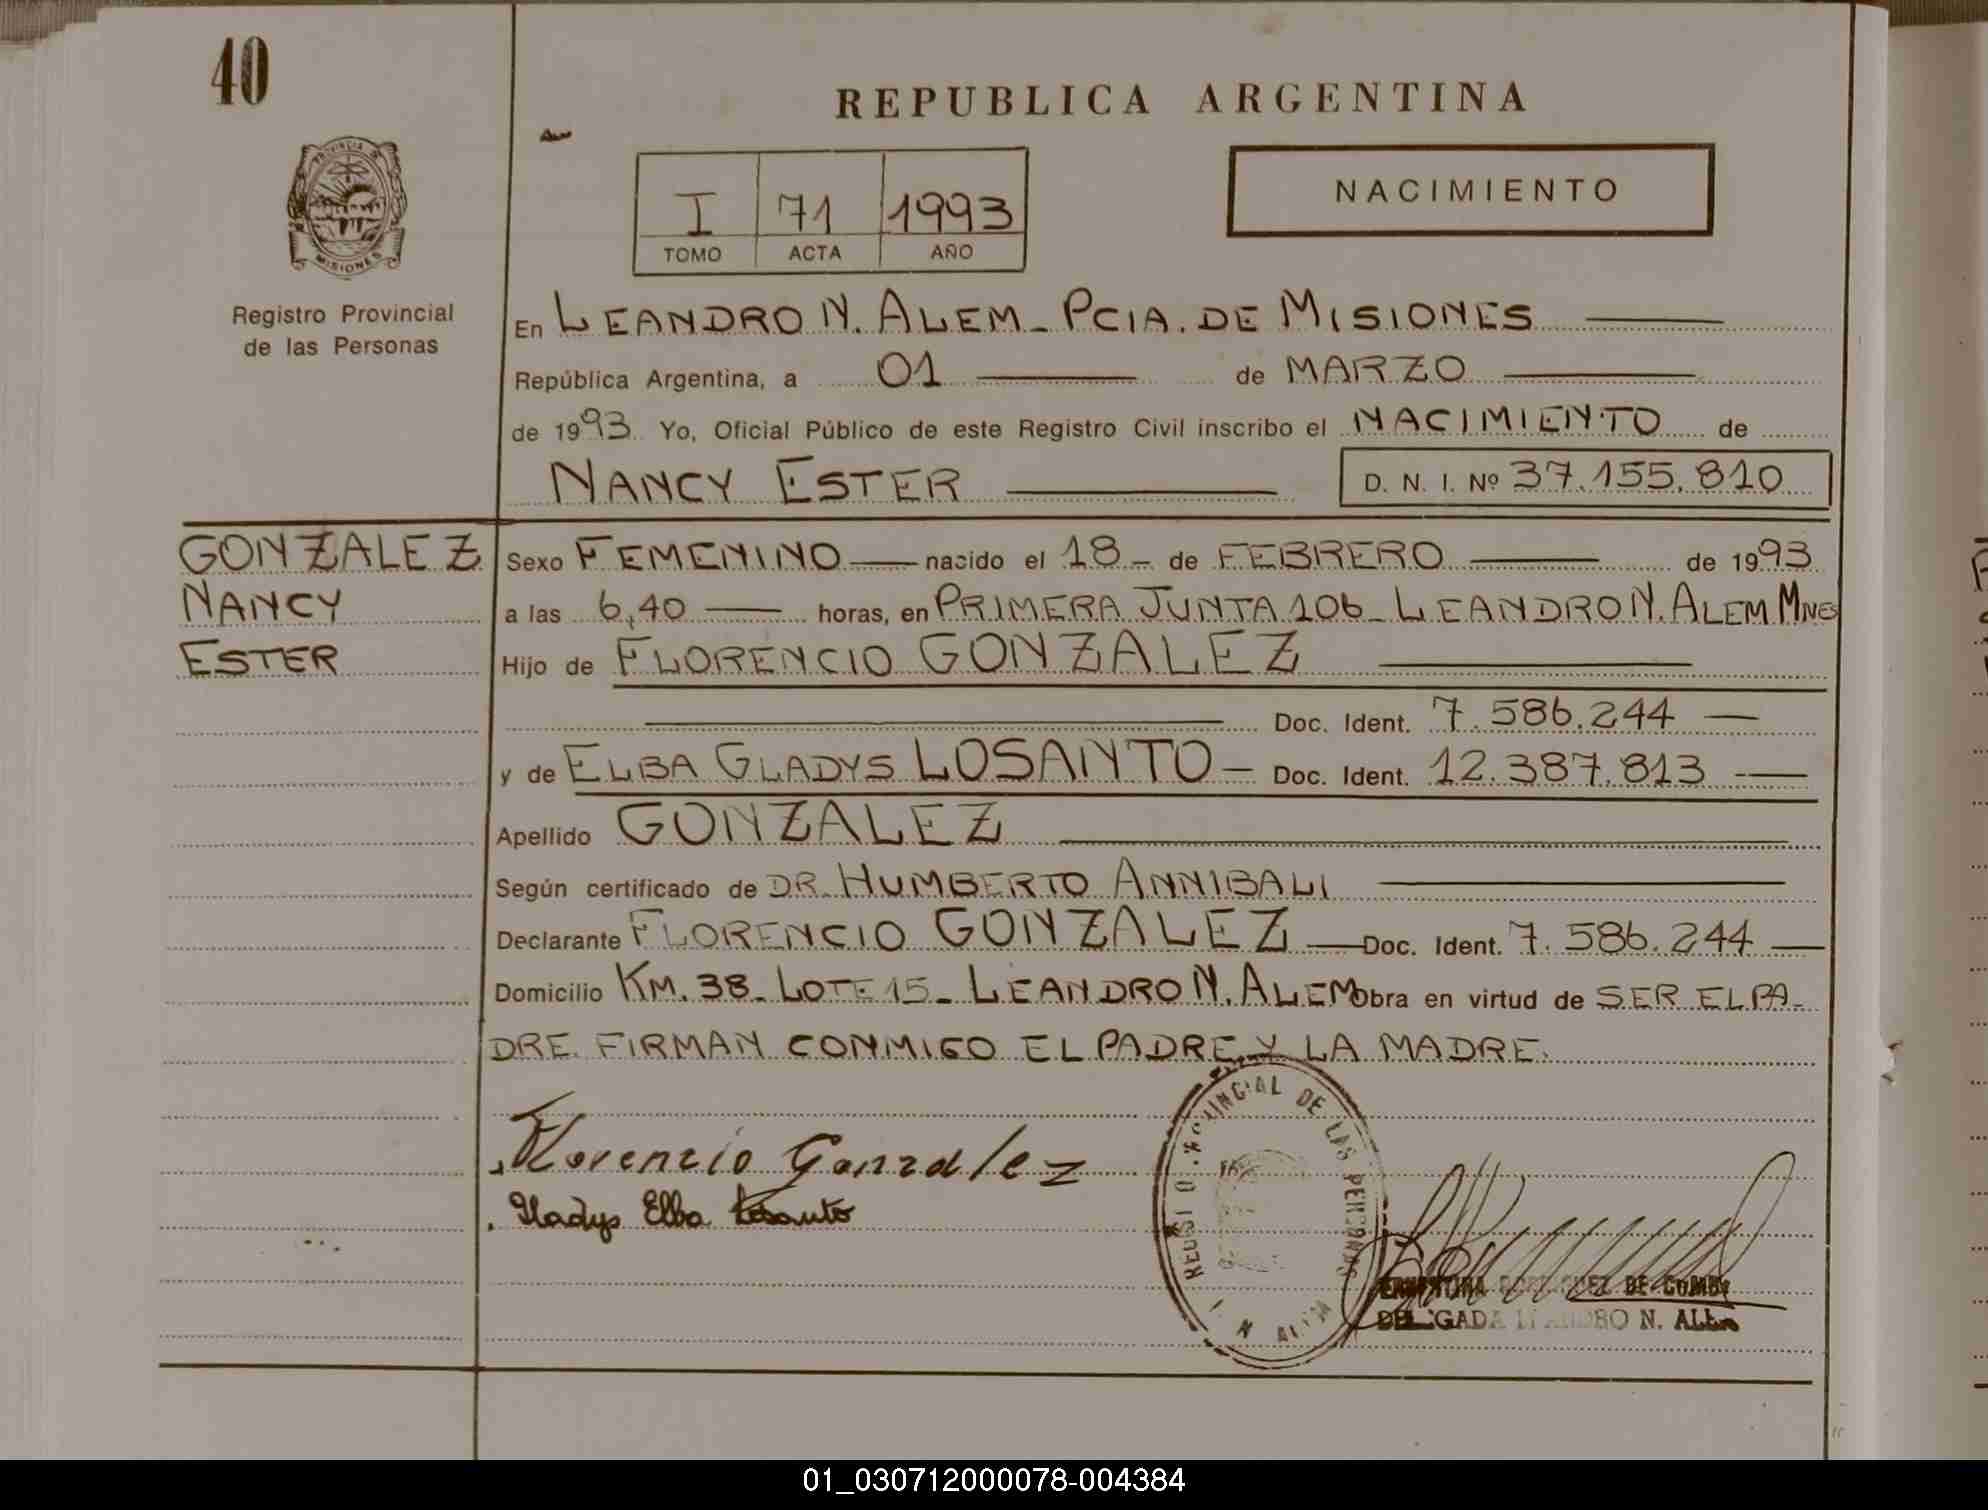 40
REPUBLICA ARGENTINA
PROVINCIA DE
MISIONES
Registro Provincial
de las Personas
I 71 1993
TOMO ACTA AÑO
NACIMIENTO
En LEANDRO N. ALEM - PCIA. DE MISIONES
República Argentina, a 01 de MARZO
de 1993 Yo, Oficial Público de este Registro Civil inscribo el NACIMIENTO de
NANCY ESTER D. N. I. Nº 37.155.810
GONZALEZ
NANCY
ESTER
Sexo FEMENINO nacido el 18 - de FEBRERO de 1993
a las 6,40 horas, en PRIMERA JUNTA 106 - LEANDRO N. ALEM MNES
Hijo de FLORENCIO GONZALEZ
Doc. Ident. 7.586.244
y de ELBA GLADYS LOSANTO - Doc. Ident. 12.387.813
Apellido GONZALEZ
Según certificado de DR. HUMBERTO ANNIBALI
Declarante FLORENCIO GONZALEZ Doc. Ident. 7.586.244
Domicilio KM. 38 - LOTE 15 - LEANDRO N. ALEM Obra en virtud de SER EL PA-
DRE. FIRMAN CONMIGO EL PADRE Y LA MADRE.
Florencio Gonzalez
Gladys Elba Losanto
PROVINCIAL DE LAS PERSONAS
N. ALEM
DE
N. ALEM
01_030712000078-004384